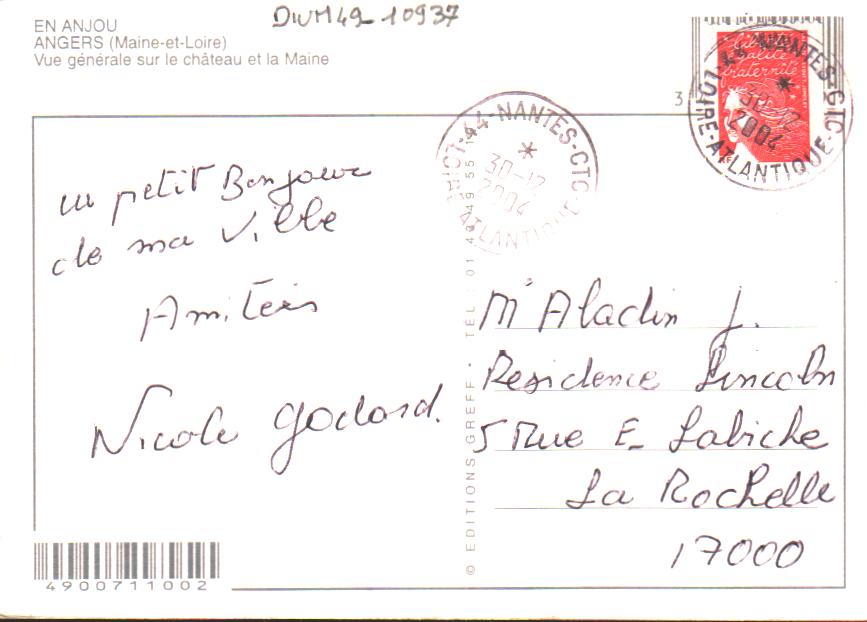 DWM49-10937
EN ANJOU
ANGERS (Maine-et-Loire)
Vue générale sur le château et la Maine
3
liberté
égalité
fraternité
44-NANTES-CTC
*
30-12
2004
LOIRE-ATLANTIQUE
44-NANTES-CTC
*
30-12
2004
LOIRE-ATLANTIQUE
un petit Bonjour
de ma Ville
Amitiés
Nicole Godard.
Mr Aladin J.
Residence Lincoln
5 Rue E. Labiche
La Rochelle
17000
© EDITIONS GREFF - TÉL : 01 49 55 1
4900711002